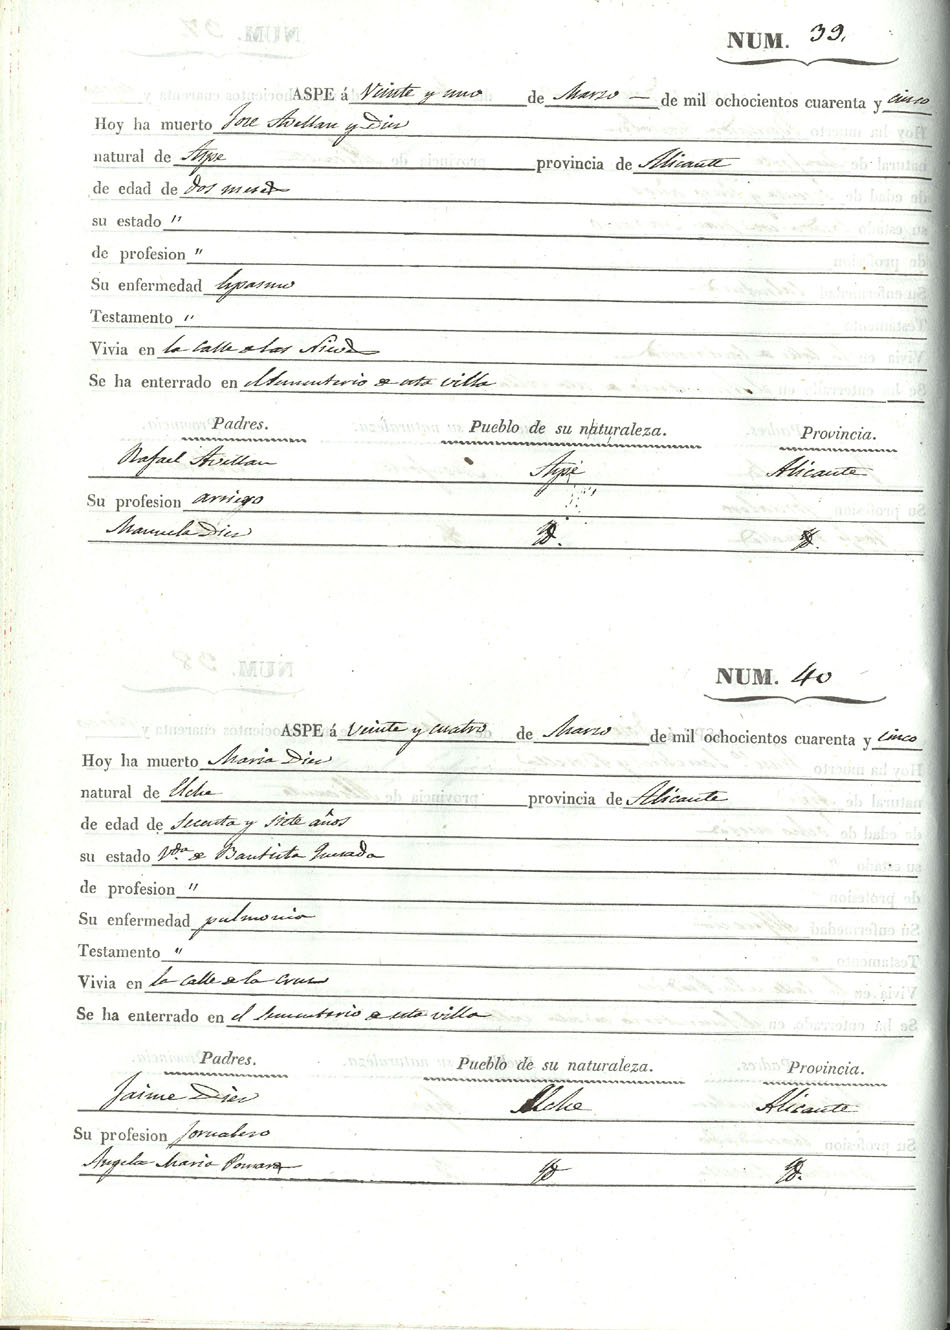 NUM. 39.
ASPE á Veinte y uno de Marzo — de mil ochocientos cuarenta y cinco
Hoy ha muerto Jose Avellan y Diez
natural de Aspe provincia de Alicante
de edad de dos meses
su estado "
de profesion "
Su enfermedad espasmo
Testamento "
Vivia en la calle de las Nieves
Se ha enterrado en el Sementerio de esta villa
Padres. Pueblo de su naturaleza. Provincia.
Rafael Avellan Aspe Alicante
Su profesion arriero
Manuela Diez Yd. Yd.
NUM. 40
ASPE á Veinte y cuatro de Marzo de mil ochocientos cuarenta y cinco
Hoy ha muerto Maria Diez
natural de Elche provincia de Alicante
de edad de secenta y siete años
su estado Vda. de Bautista Quesada
de profesion "
Su enfermedad pulmonia
Testamento "
Vivia en la calle de la Cruz
Se ha enterrado en el Sementerio de esta villa
Padres. Pueblo de su naturaleza. Provincia.
Jaime Diez Elche Alicante
Su profesion Jornalero
Angela Maria Yd. Yd.